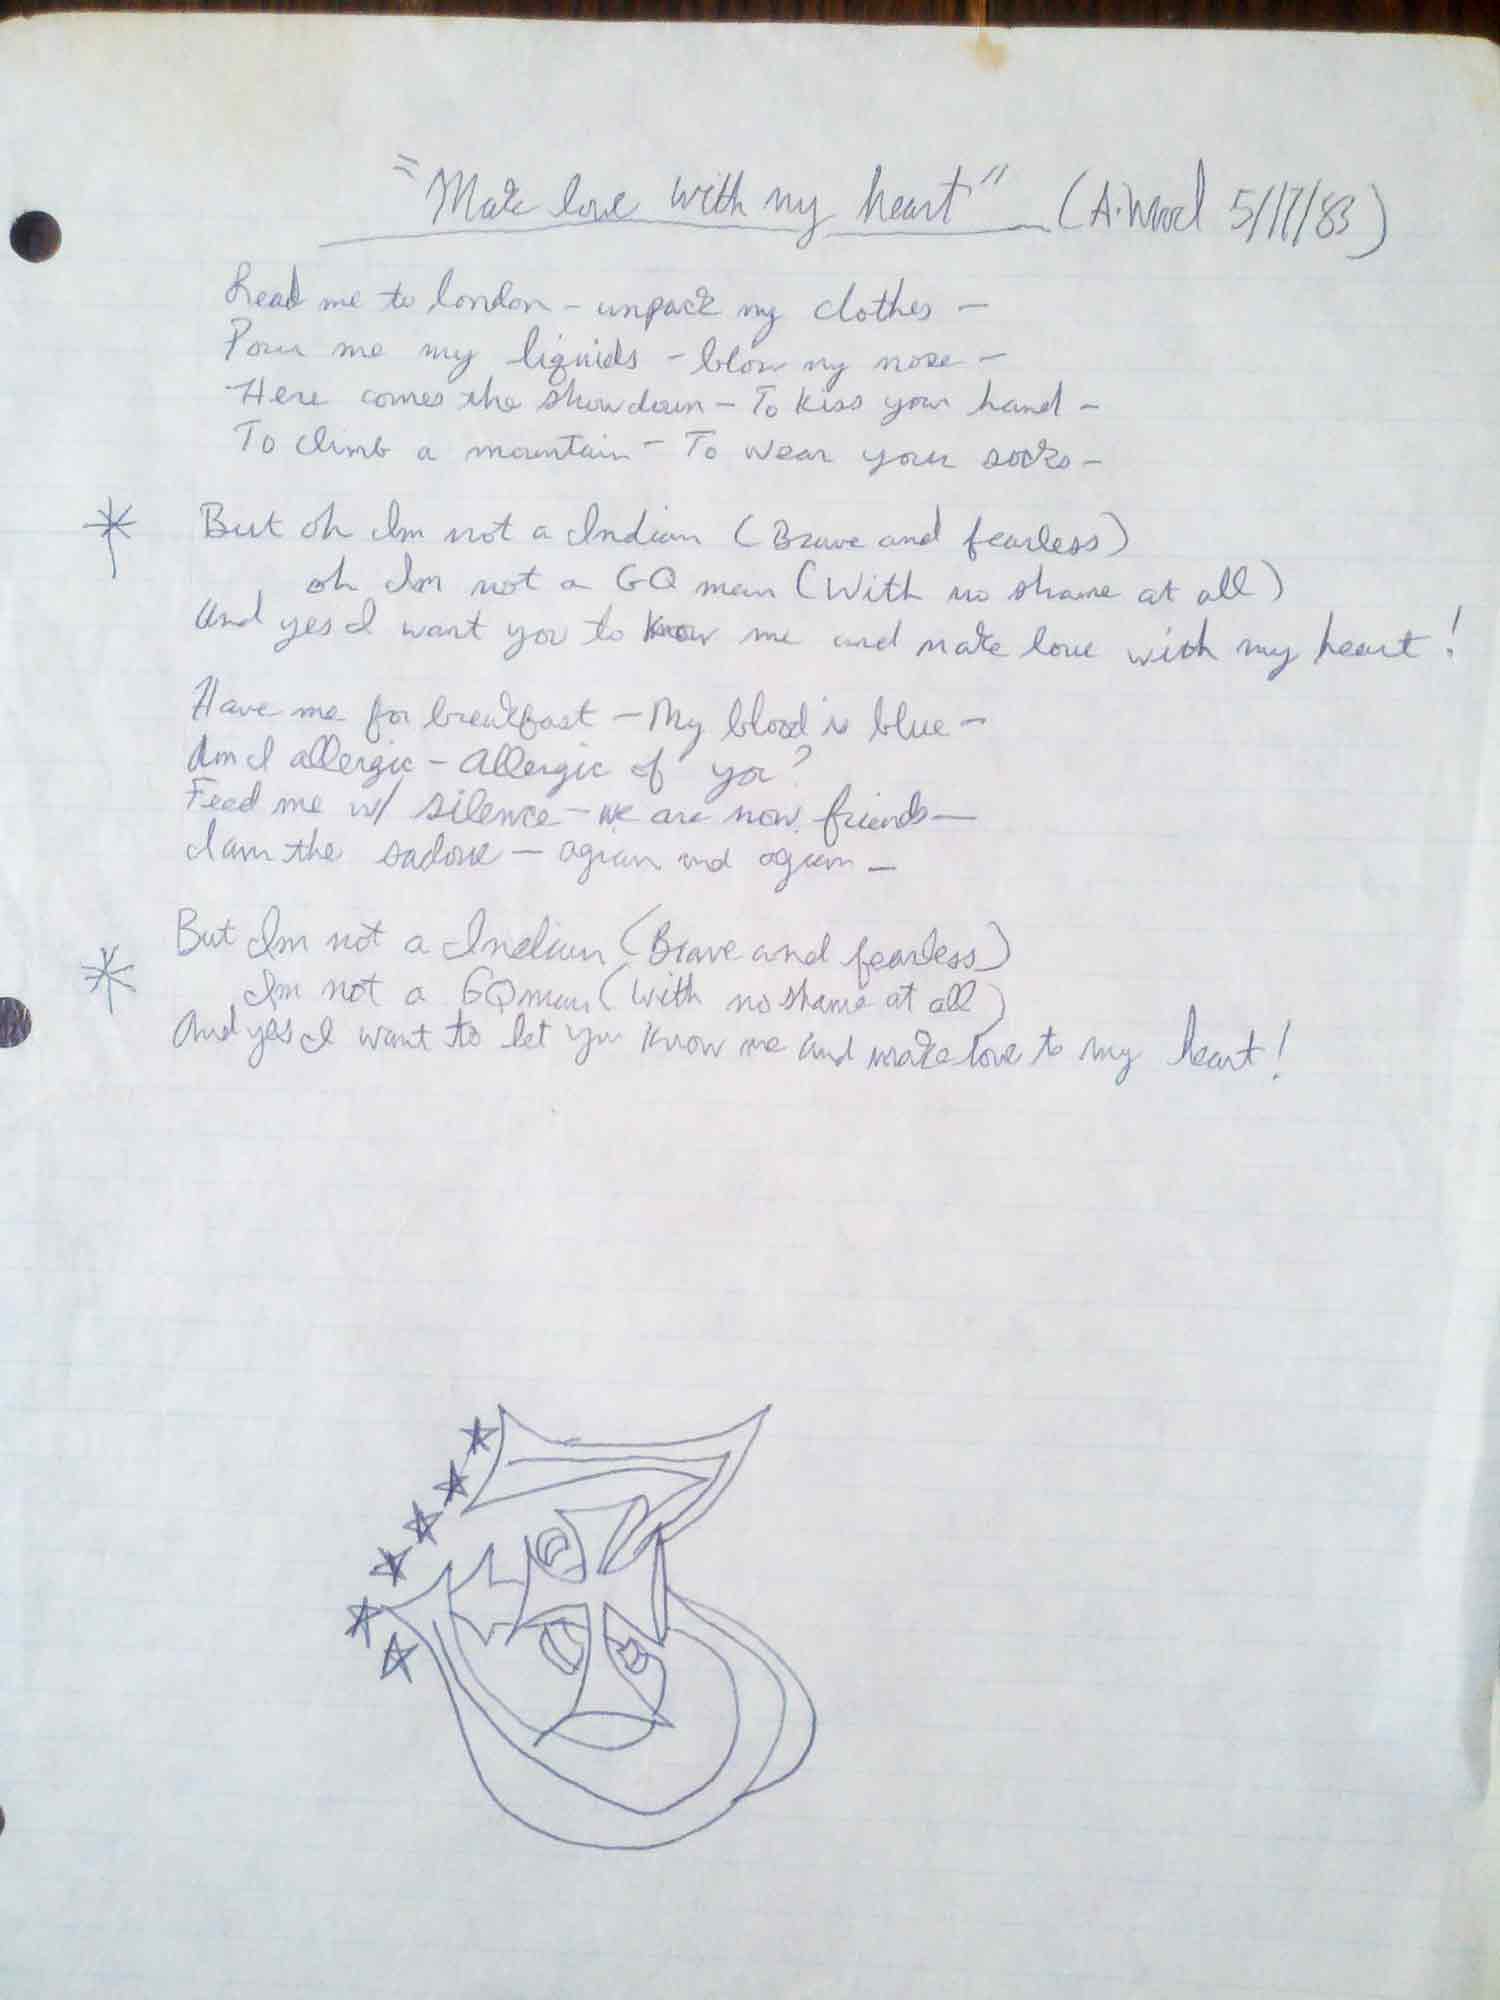 "Make love with my heart" (A. Wood 5/17/83)
Lead me to london - unpack my clothes -
Pour me my liquids - blow my nose -
Here comes the showdown - To kiss your hand -
To climb a mountain - To wear your socks -
* But oh Im not a Indian (Brave and fearless)
oh Im not a GQ man (With no shame at all)
And yes I want you to know me and make love with my heart!
Have me for breakfast - My blood is blue -
Am I allergic - Allergic of you?
Feed me w/ silence - we are now friends -
I am the - agian and agian -
* But Im not a Indian (Brave and fearless)
Im not a GQ man (with no shame at all)
And yes I want to let you know me and make love to my heart!